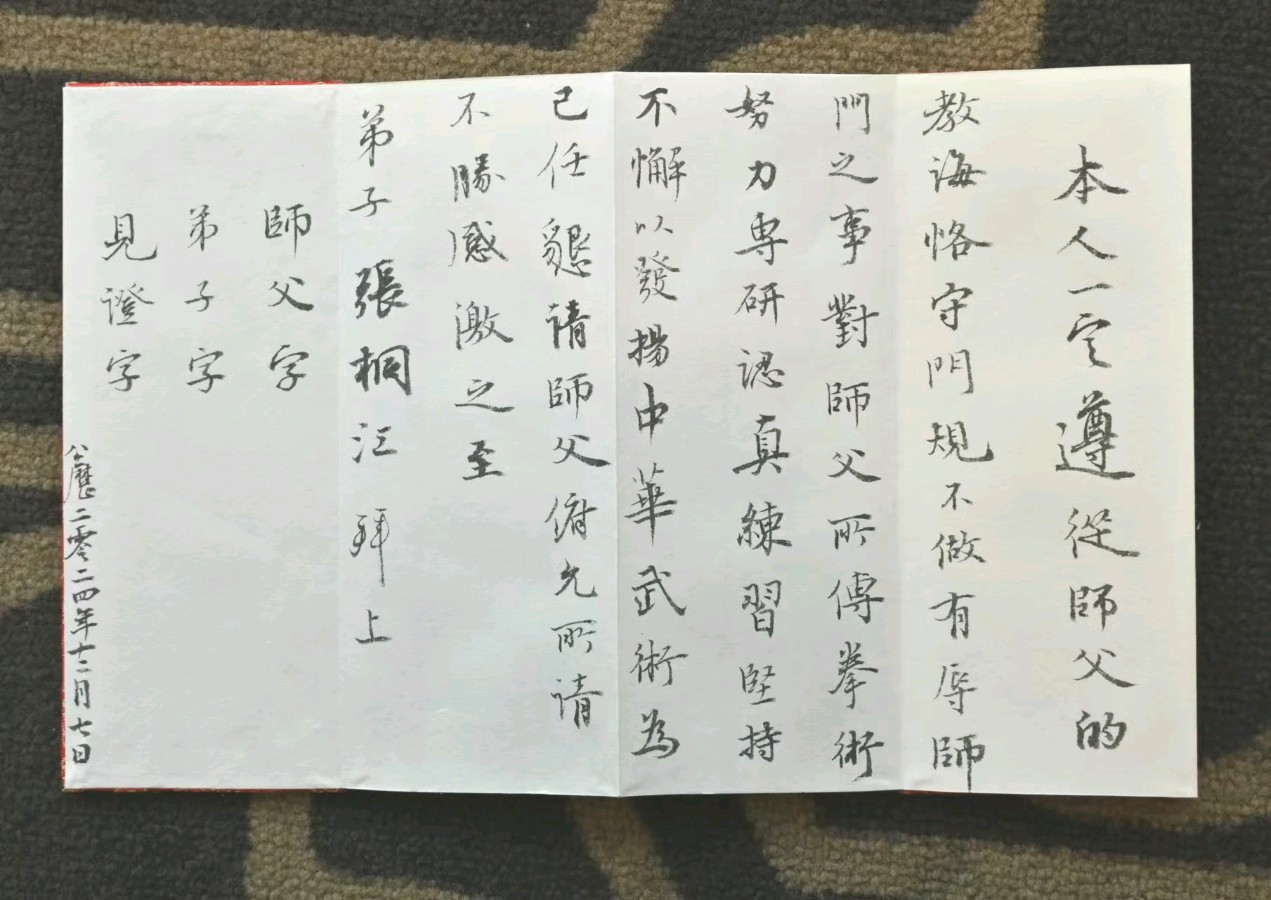 本人一定遵從師父的
教誨恪守門規不做有辱師
門之事對師父所傳拳術
努力専研認真練習堅持
不懈以發揚中華武術為
己任懇請師父俯允所請
不勝感激之至
弟子張桐江拜上
師父字
弟子字
見證字
公曆二零二四年十二月七日